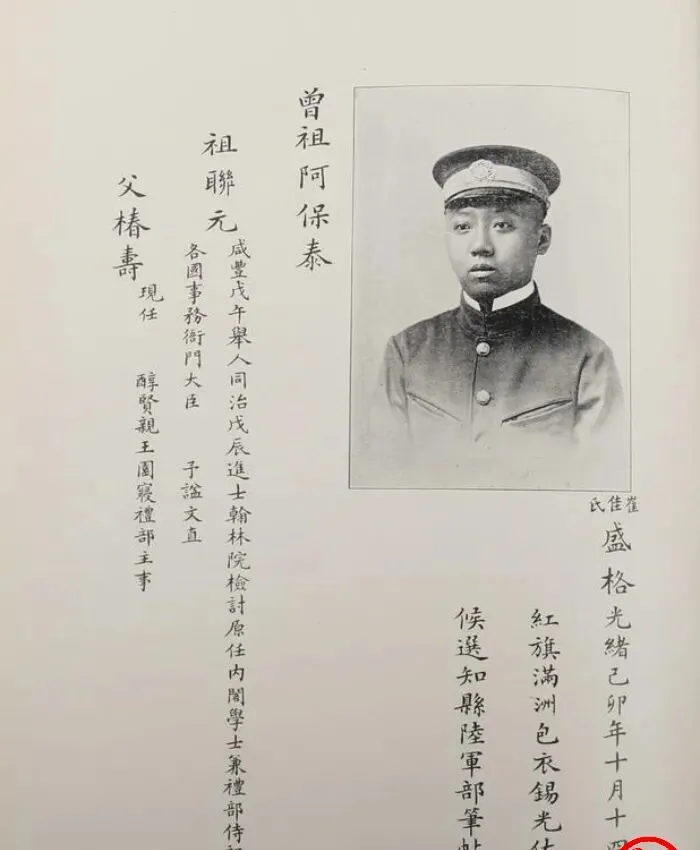 崔佳氏
盛格光緒己卯年十月十四
紅旗滿洲包衣錫光佐
候選知縣陸軍部筆帖
曾祖阿保泰
祖聯元
咸豐戊午舉人同治戊辰進士翰林院檢討原任內閣學士兼禮部侍郎
各國事務衙門大臣 予諡文直
父椿壽
現任 醇賢親王園寢禮部主事